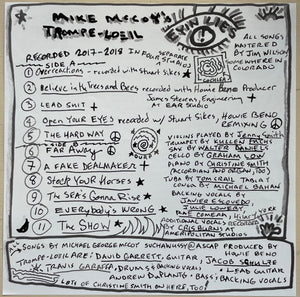 MIKE MCCOY'S
TROMPE-LOEIL
EVEN LIES
ALL SONGS
MASTERED
BY TIM WILSON
SOMEWHERE IN
COLORADO
RECORDED 2017-2018 IN FOUR SEPARATE STUDIOS
SIDE A
① OVERREACTIONS - RECORDED WITH STUART SIKES
② BELIEVE IN TREES AND BEES RECORDED WITH HOWIE BENO PRODUCER
③ LEAD SHIT + JAMES STEVENS, ENGINEERING
AT EAR STUDIO
④ OPEN YOUR EYES RECORDED W/ STUART SIKES, HOWIE BENO
REMIXING
⑤ THE HARD WAY
SIDE B
⑥ FAR AWAY
⑦ A FAKE DEALMAKER
⑧ STACK YOUR HORSES
⑨ THE SEA'S GONNA RISE
⑩ EVERYBODY'S WRONG
⑪ THE SHOW
VIOLINS PLAYED BY JENNY SMITH
TRUMPET BY KULLEN FUCHS
SAX BY WALTER DANIELS
CELLO BY GRAHAM LOW
PIANO BY CHRISTINE SMITH
(ACCORDIAN AND ORGAN, TOO)
TUBA BY TOM CRAIL
CONGA BY MICHAEL BAHAN
BACKING VOCALS BY
JAVIER ESCOVEDO
JULIE LOWERY
RAE COMEAU
ADDITIONAL VOCALS RECORDED BY
CRIS BURNS AT
STUDIOS
SONGS BY MICHAEL GEORGE MCCOY ASCAP PRODUCED BY
HOWIE BENO
TROMPE-LOEIL ARE: DAVID GARRETT, GUITAR, JACOB SCHULZE
LEAD GUITAR
TRAVIS GARAFFA, DRUMS & BACKING VOCALS
ANDREW DUPLANTIS, BASS, BACKING VOCALS
LOTS OF CHRISTINE SMITH ON HERE, TOO!